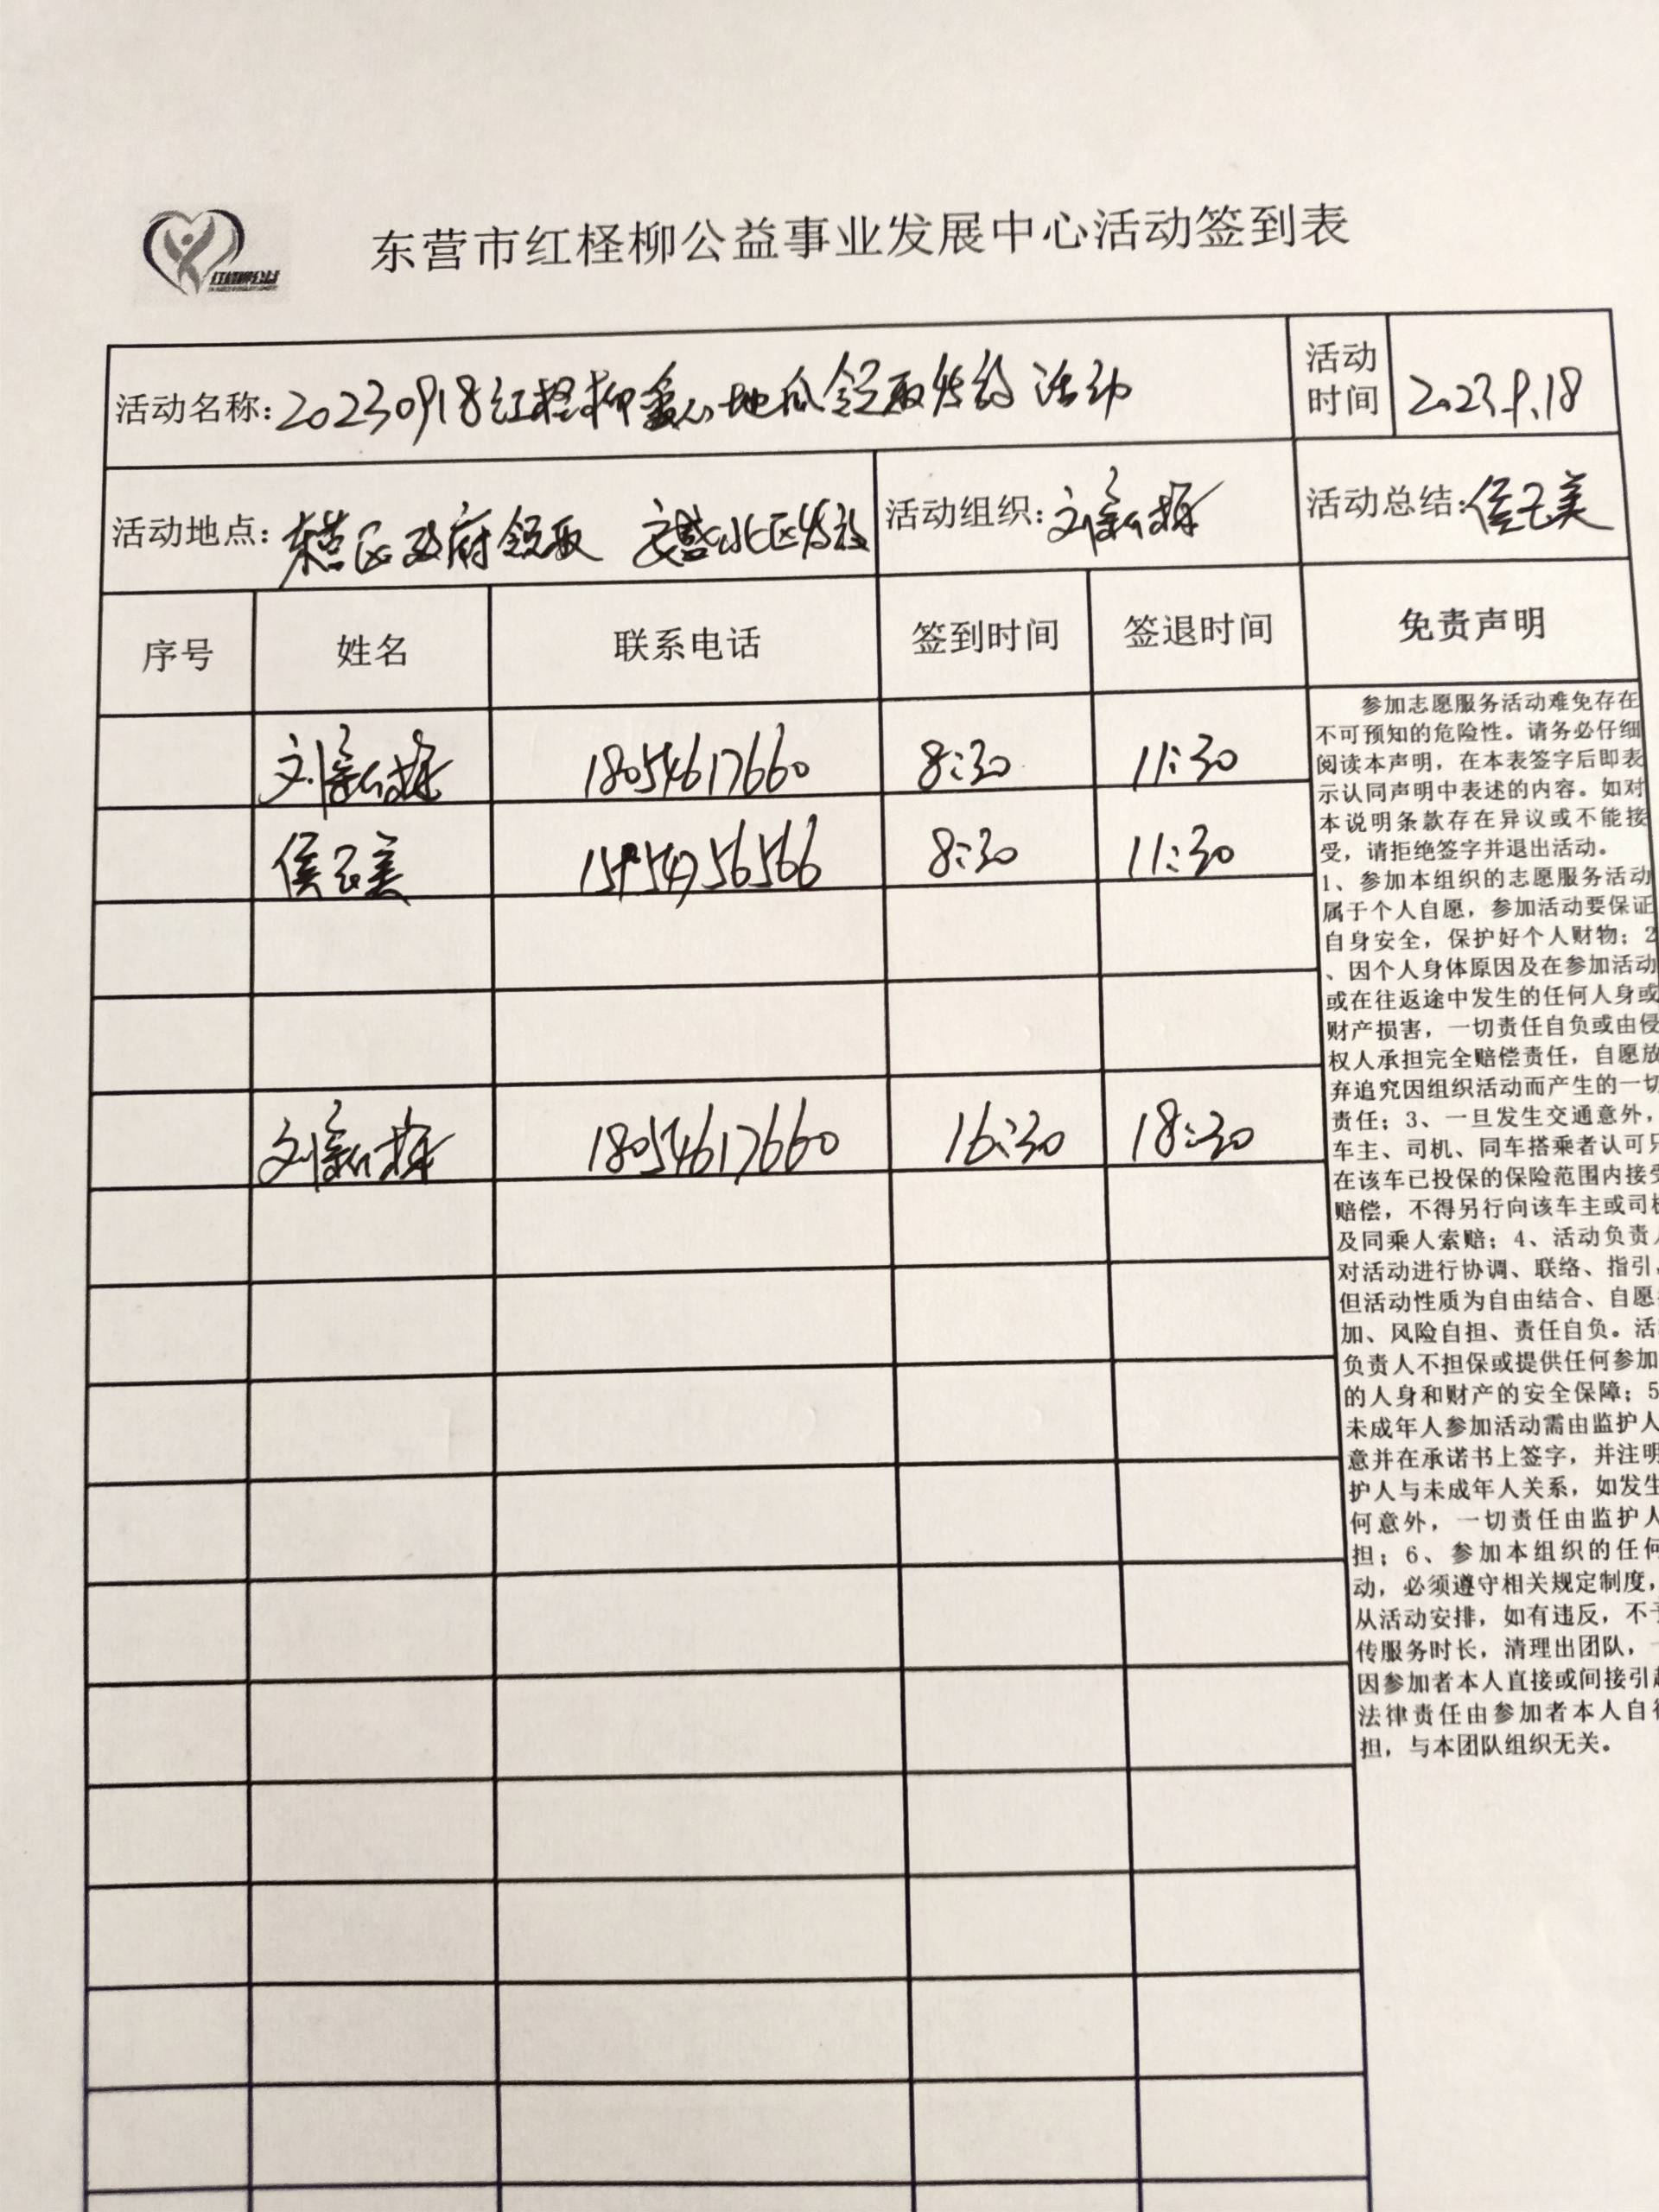 红柽柳公益
东营市红柽柳公益事业发展中心活动签到表
活动名称: 20230918红柽柳爱心地瓜领取发放活动
活动时间 2023.9.18
活动地点: 东营区政府领取 文盛北区发放
活动组织: 刘新
活动总结: 侯美
序号 姓名 联系电话 签到时间 签退时间 免责声明
刘新 18054617660 8:30 11:30
侯美 8:30 11:30
刘新 18054617660 16:30 18:30
参加志愿服务活动难免存在
不可预知的危险性。请务必仔细
阅读本声明，在本表签字后即表
示认同声明中表述的内容。如对
本说明条款存在异议或不能接
受，请拒绝签字并退出活动。
1、参加本组织的志愿服务活动
属于个人自愿，参加活动要保证
自身安全，保护好个人财物；2
、因个人身体原因及在参加活动
或在往返途中发生的任何人身或
财产损害，一切责任自负或由侵
权人承担完全赔偿责任，自愿放
弃追究因组织活动而产生的一切
责任；3、一旦发生交通意外，
车主、司机、同车搭乘者认可只
在该车已投保的保险范围内接受
赔偿，不得另行向该车主或司机
及同乘人索赔；4、活动负责人
对活动进行协调、联络、指引，
但活动性质为自由结合、自愿
加、风险自担、责任自负。活
负责人不担保或提供任何参加
的人身和财产的安全保障；5
未成年人参加活动需由监护人
意并在承诺书上签字，并注明
护人与未成年人关系，如发生
何意外，一切责任由监护人
担；6、参加本组织的任何
动，必须遵守相关规定制度，
从活动安排，如有违反，不予
传服务时长，清理出团队，一
因参加者本人直接或间接引起
法律责任由参加者本人自行
担，与本团队组织无关。